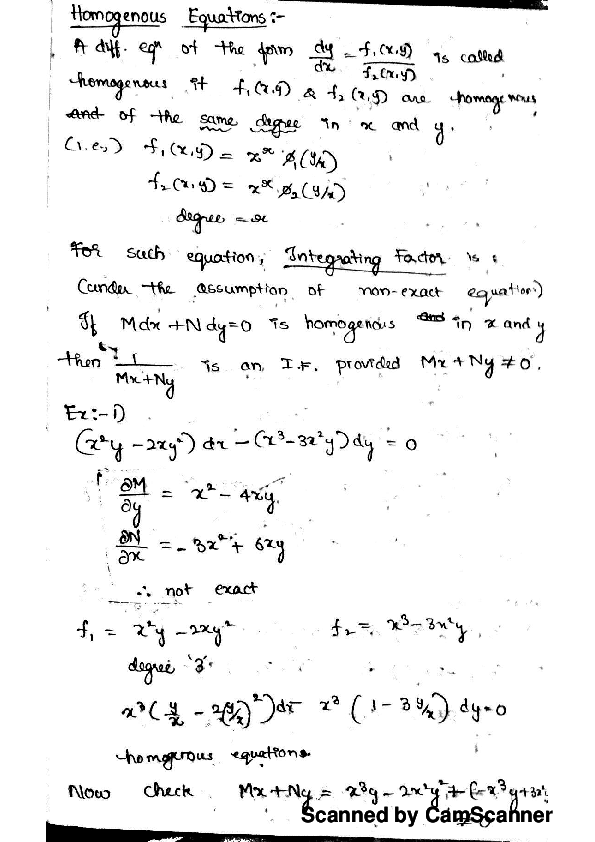 Homogenous Equations :-
A diff. eqn of the form dy/dx = f₁(x,y)/f₂(x,y) is called
homogenous if f₁(x,y) & f₂(x,y) are homogenous
and of the same degree in x and y.
(i.e.,) f₁(x,y) = x^r ϕ₁(y/x)
f₂(x,y) = x^r ϕ₂(y/x)
degree = r
For such equation, Integrating Factor is :
(under the assumption of non-exact equation)
If Mdx + Ndy = 0 is homogenous in x and y
then 1/(Mx+Ny) is an I.F. provided Mx + Ny ≠ 0.
Ex:- 1)
(x²y - 2xy²) dx - (x³ - 3x²y) dy = 0
∂M/∂y = x² - 4xy
∂N/∂x = - 3x² + 6xy
∴ not exact
f₁ = x²y - 2xy² f₂ = x³ - 3x²y
degree '3'
x³ (y/x - 2(y/x)²) dx x³ (1 - 3 y/x) dy = 0
homgerous equations
Now check Mx + Ny = x³y - 2x²y² + (-x³y + 3x²
Scanned by CamScanner